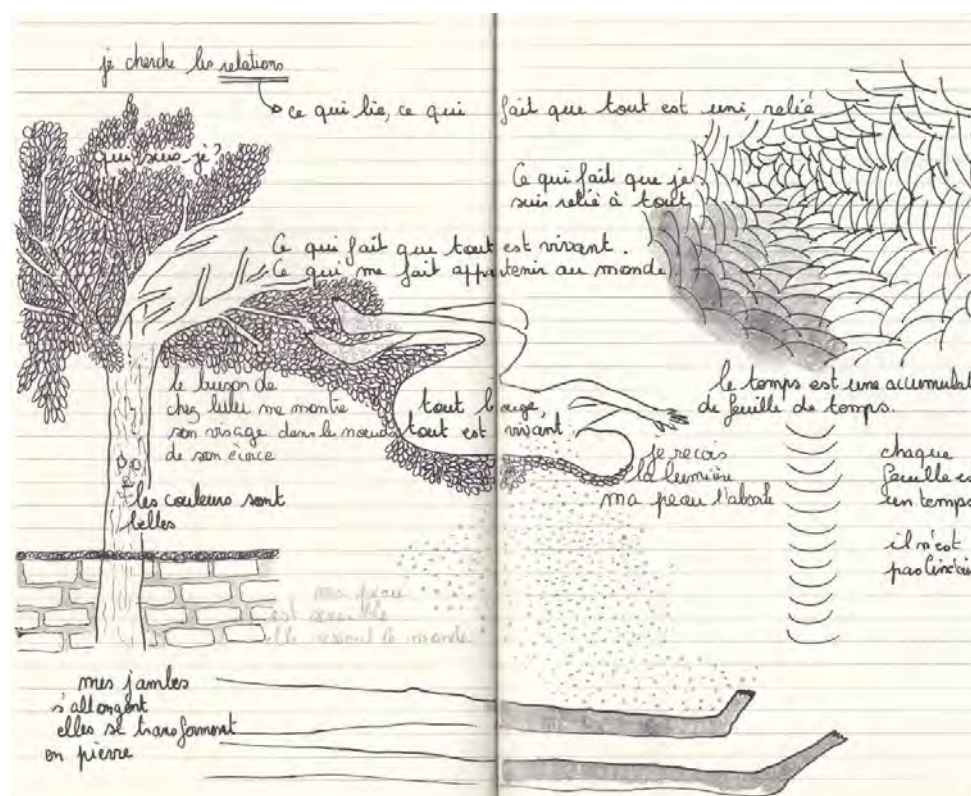 je cherche les relations
ce qui lie, ce qui fait que tout est uni, relié
qui suis-je?
Ce qui fait que je
suis relié à tout
Ce qui fait que tout est vivant.
Ce qui me fait appartenir au monde
le buison de
chez lulu me montre
son visage dans le noeud
de son écorce
tout bouge,
tout est vivant
les couleurs sont
belles
je reçois
la lumière
ma peau l'absorbe
le temps est une accumulat
de feuille de temps.
chaque
feuille es
un temps
il n'est
pas linéai
ma peau
est sensible
elle ressent le monde
mes jambes
s'allongent
elles se transforment
en pierre